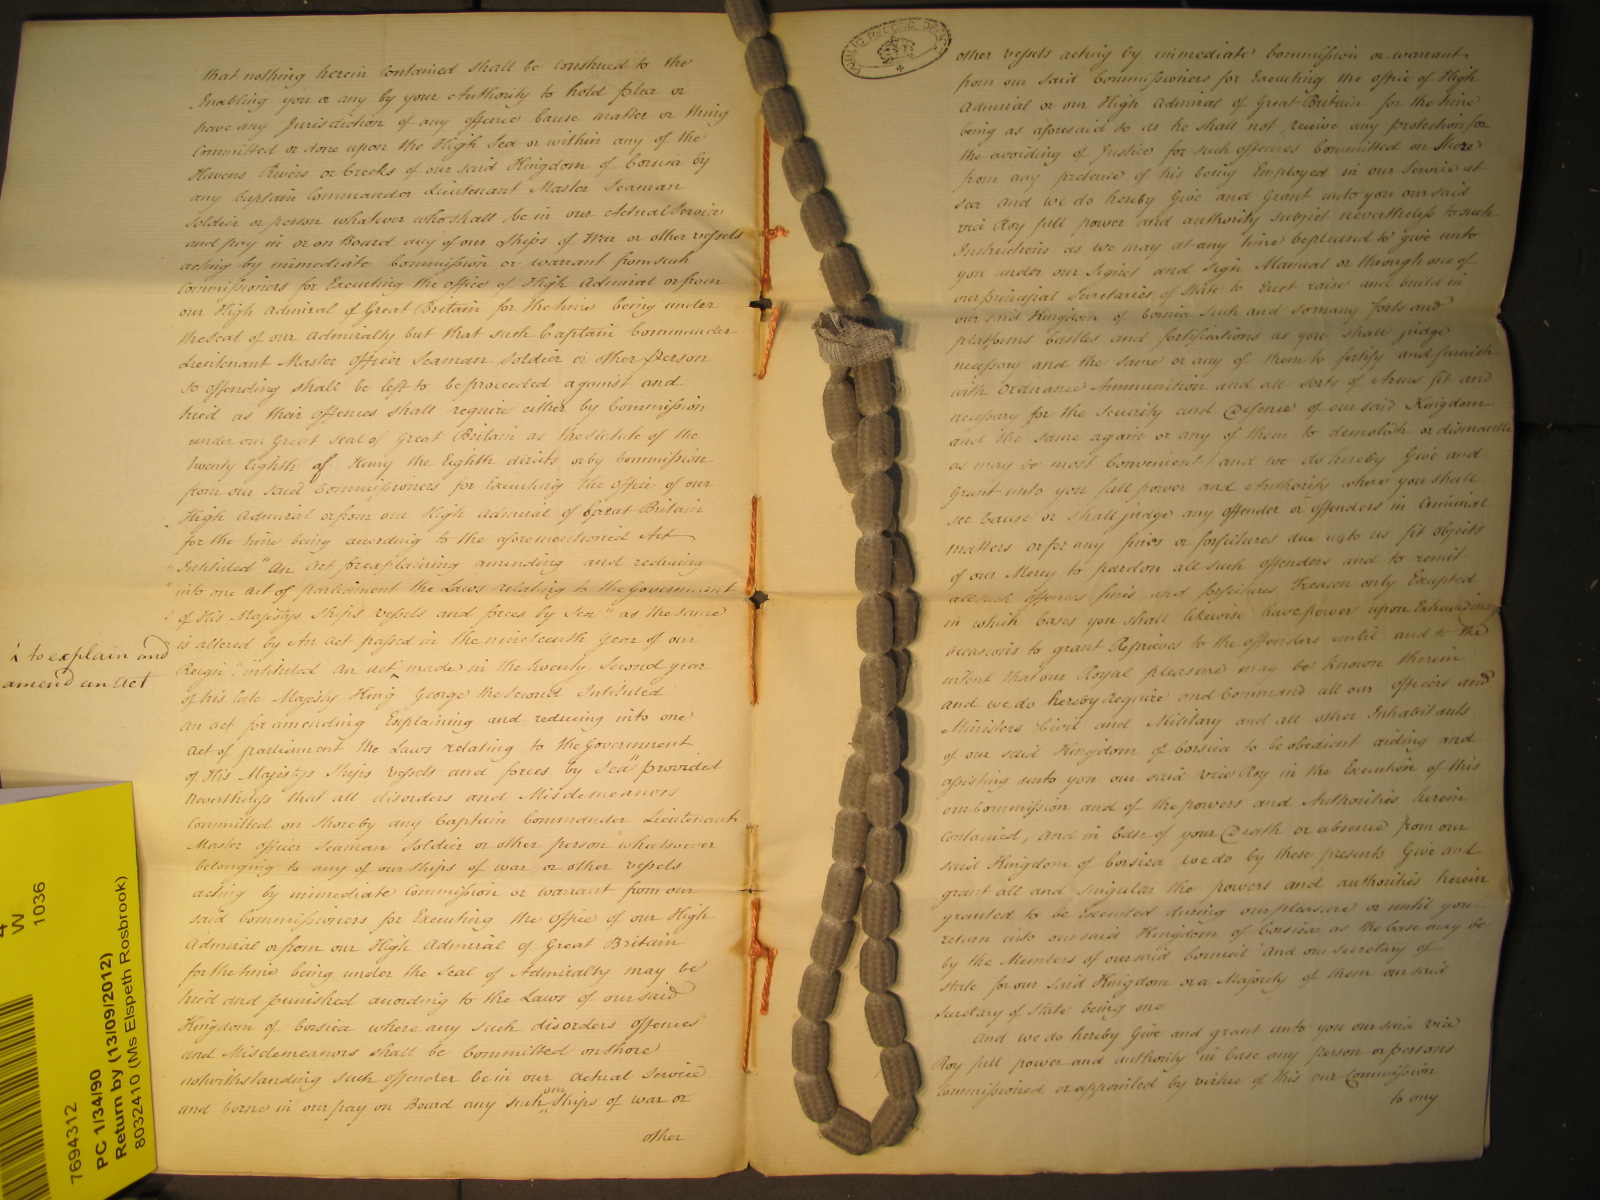 that nothing herein contained shall be construed to the
Enabling you or any by your Authority to hold plea or
have any Jurisdiction of any offence cause matter or thing
Committed or done upon the High Sea or within any of the
Havens Rivers or Creeks of our said Kingdom of Corsica by
any Captain Commander Lieutenant Master Seaman
Soldier or person whatever who shall be in our Actual Service
and pay in or on Board any of our Ships of War or other vessels
acting by immediate Commission or warrant from such
Commissioners for Executing the office of High Admiral or from
our High Admiral of Great Britain for the time being under
the seal of our Admiralty but that such Captain Commander
Lieutenant Master officer Seaman Soldier or other person
so offending shall be left to be proceeded against and
tried as their offences shall require either by Commission
under our Great Seal of Great Britain as the Statute of the
twenty Eighth of Henry the Eighth directs or by Commission
from our said Commissioners for Executing the office of our
High Admiral or from our High Admiral of Great Britain
for the time being according to the aforementioned Act
Intituled "An Act for explaining amending and reducing
into one act of parliament the Laws relating to the Government
of His Majestys Ships vessels and forces by Sea" as the same
is altered by An Act passed in the nineteenth year of our
Reign "intituled An act made in the twenty Second year
to explain and
amend an Act
of his late Majesty King George the Second Intituled
an act for amending Explaining and reducing into one
Act of parliament the Laws relating to the Government
of His Majestys Ships vessels and forces by Sea" provided
Nevertheless that all disorders and Misdemeanors
Committed on Shore by any Captain Commander Lieutenant
Master officer Seaman Soldier or other person whatsoever
belonging to any of our Ships of war or other vessels
acting by immediate Commission or warrant from our
said Commissioners for Executing the office of our High
Admiral or from our High Admiral of Great Britain
for the time being under the Seal of Admiralty may be
tried and punished according to the Laws of our said
Kingdom of Corsica where any such disorders offences
and Misdemeanors shall be Committed on shore
notwithstanding such offender be in our actual Service
and borne in our pay on Board any such our Ships of war or
other
PUBLIC RECORD OFFICE
other vessels acting by immediate Commission or warrant
from our said Commissioners for Executing the office of High
Admiral or our High Admiral of Great Britain for the time
being as aforesaid so as he shall not receive any protection for
the avoiding of Justice for such offences Committed on Shore
from any pretence of his being Employed in our Service at
sea and we do hereby Give and Grant unto you our said
vice Roy full power and authority subject nevertheless to such
Instructions as we may at any time be pleased to give unto
you under our Signet and Sign Manual or through one of
our principal Secretaries of State to Erect raise and build in
our said Kingdom of Corsica such and so many forts and
platforms Castles and fortifications as you shall judge
necessary and the same or any of them to fortify and furnish
with Ordnance Ammunition and all sorts of Arms fit and
necessary for the Security and Defence of our said Kingdom
and the same again or any of them to demolish or dismantle
as may be most Convenient / and we do hereby Give and
Grant unto you full power and Authority where you shall
see Cause or shall judge any offender or offenders in Criminal
matters or for any fines or forfeitures due unto us fit objects
of our Mercy to pardon all such offenders and to remit
all such offences fines and forfeitures Treason only Excepted
in which Cases you shall likewise have power upon Extraordinary
occasions to grant Reprieves to the offenders until and to the
intent that our Royal pleasure may be known therein
and we do hereby Require and Command all our officers and
Ministers Civil and Military and all other Inhabitants
of our said Kingdom of Corsica to be obedient aiding and
assisting unto you our said vice Roy in the Execution of this
our Commission and of the powers and Authorities herein
Contained, and in Case of your Death or absence from our
said Kingdom of Corsica we do by these presents Give and
grant all and singular the powers and authorities herein
granted to be Executed during our pleasure or until you
return into our said Kingdom of Corsica as the Case may be
by the Members of our said Council and our Secretary of
State for our said Kingdom or a Majority of them our said
Secretary of State being one
and we do hereby Give and grant unto you our said vice
Roy full power and authority in Case any person or persons
commissioned or appointed by virtue of this our Commission
to any
4
W
1036
7694312
PC 1/34/90
Return by (13/09/2012)
8032410 (Ms Elspeth Rosbrook)